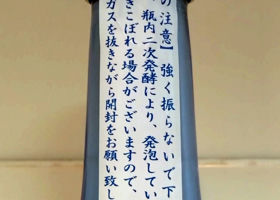 の注意】強く振らないで下
、瓶内二次発酵により、発泡してい
きこぼれる場合がございますので、
ガスを抜きながら開封をお願い致し